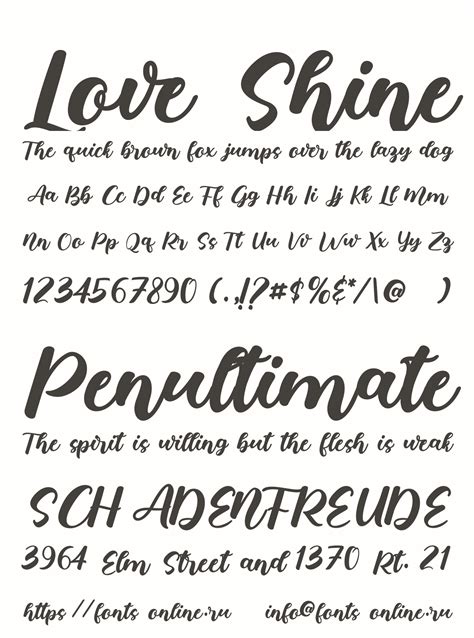 Love Shine
The quick brown fox jumps over the lazy dog
Aa Bb Cc Dd Ee Ff Gg Hh Ii Jj Kk Ll Mm
Nn Oo Pp Qq Rr Ss Tt Uu Vv Ww Xx Yy Zz
1234567890 (.,!?#$%&*/\@ )
Penultimate
The spirit is willing but the flesh is weak
SCH ADENFREUDE
3964 Elm Street and 1370 Rt. 21
https //fonts online.ru info@fonts online.ru